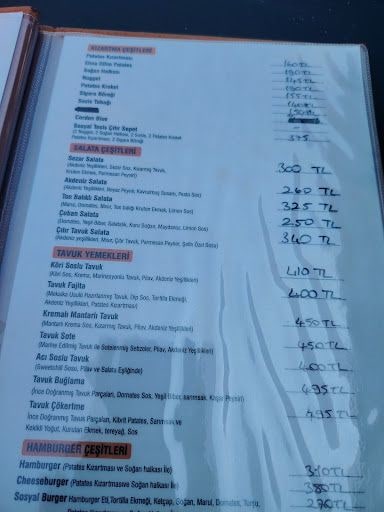 KIZARTMA ÇEŞİTLERİ
Patates Kızartması 160 TL
Elma Dilim Patates 190 TL
Soğan Halkası 145 TL
Nugget 190 TL
Patates Kroket 155 TL
Sigara Böreği 140 TL
Sosis Tabağı 150 TL
Cordon Blue -
Sosyal Tesis Çıtır Sepet 375
(2 Nugget, 2 Soğan Halkası, 2 Sosis, 2 Patates Kroket
Patates Kızartması, 2 Sigara Böreği)
SALATA ÇEŞİTLERİ
Sezar Salata 300 TL
(Akdeniz Yeşillikleri, Sezar Sos, Kızarmış Tavuk,
Kruton Ekmek, Parmesan Peynir)
Akdeniz Salata 260 TL
(Akdeniz Yeşillikleri, Beyaz Peynir, Kavrulmuş Susam, Pesto Sos)
Ton Balıklı Salata 325 TL
(Marul, Domates, Mısır, Ton balığı Kruton Ekmek, Limon Sos)
Çoban Salata 250 TL
(Domates, Yeşil Biber, Salatalık, Kuru Soğan, Maydanoz, Limon Sos)
Çıtır Tavuk Salata 340 TL
(Akdeniz yeşillikleri, Mısır, Çıtır Tavuk, Parmesan Peynir, Şefin Özel Sosu)
TAVUK YEMEKLERİ
Köri Soslu Tavuk 410 TL
(Köri Sos, Krema, Marinasyonlu Tavuk, Pilav, Akdeniz Yeşillikleri)
Tavuk Fajita 400 TL
(Meksika Usulü Hazırlanmış Tavuk, Dip Sos, Tortilla Ekmeği,
Akdeniz Yeşillikleri, Patates Kızartması)
Kremalı Mantarlı Tavuk 450 TL
(Mantarlı Krema Sos, Kızarmış Tavuk, Pilav, Akdeniz Yeşillikleri)
Tavuk Sote 450 TL
(Marine Edilmiş Tavuk ile Sotelenmiş Sebzeler, Pilav, Akdeniz Yeşillikleri)
Acı Soslu Tavuk 400 TL
(Sweetchili Sosu, Pilav ve Salata Eşliğinde)
Tavuk Buğlama 495 TL
(İnce Doğranmış Tavuk Parçaları, Domates Sos, Yeşil Biber, sarımsak, Kaşar Peyniri)
Tavuk Çökertme 495 TL
(İnce Doğranmış Tavuk Parçaları, Kibrit Patates, Sarımsak ve
Kekikli Yoğurt, Kurutan Ekmek, tereyağ, Sos
HAMBURGER ÇEŞİTLERİ
Hamburger (Patates Kızartması ve Soğan halkası ile) 310 TL
Cheeseburger (Patates Kızartmasıve Soğan halkası ile) 380 TL
Sosyal Burger Hamburger Eti,Tortilla Ekmeği, Ketçap, Soğan, Marul, Domates, Turşu, 290 TL
Patates Kızartması ve Soğan Halkası ile)